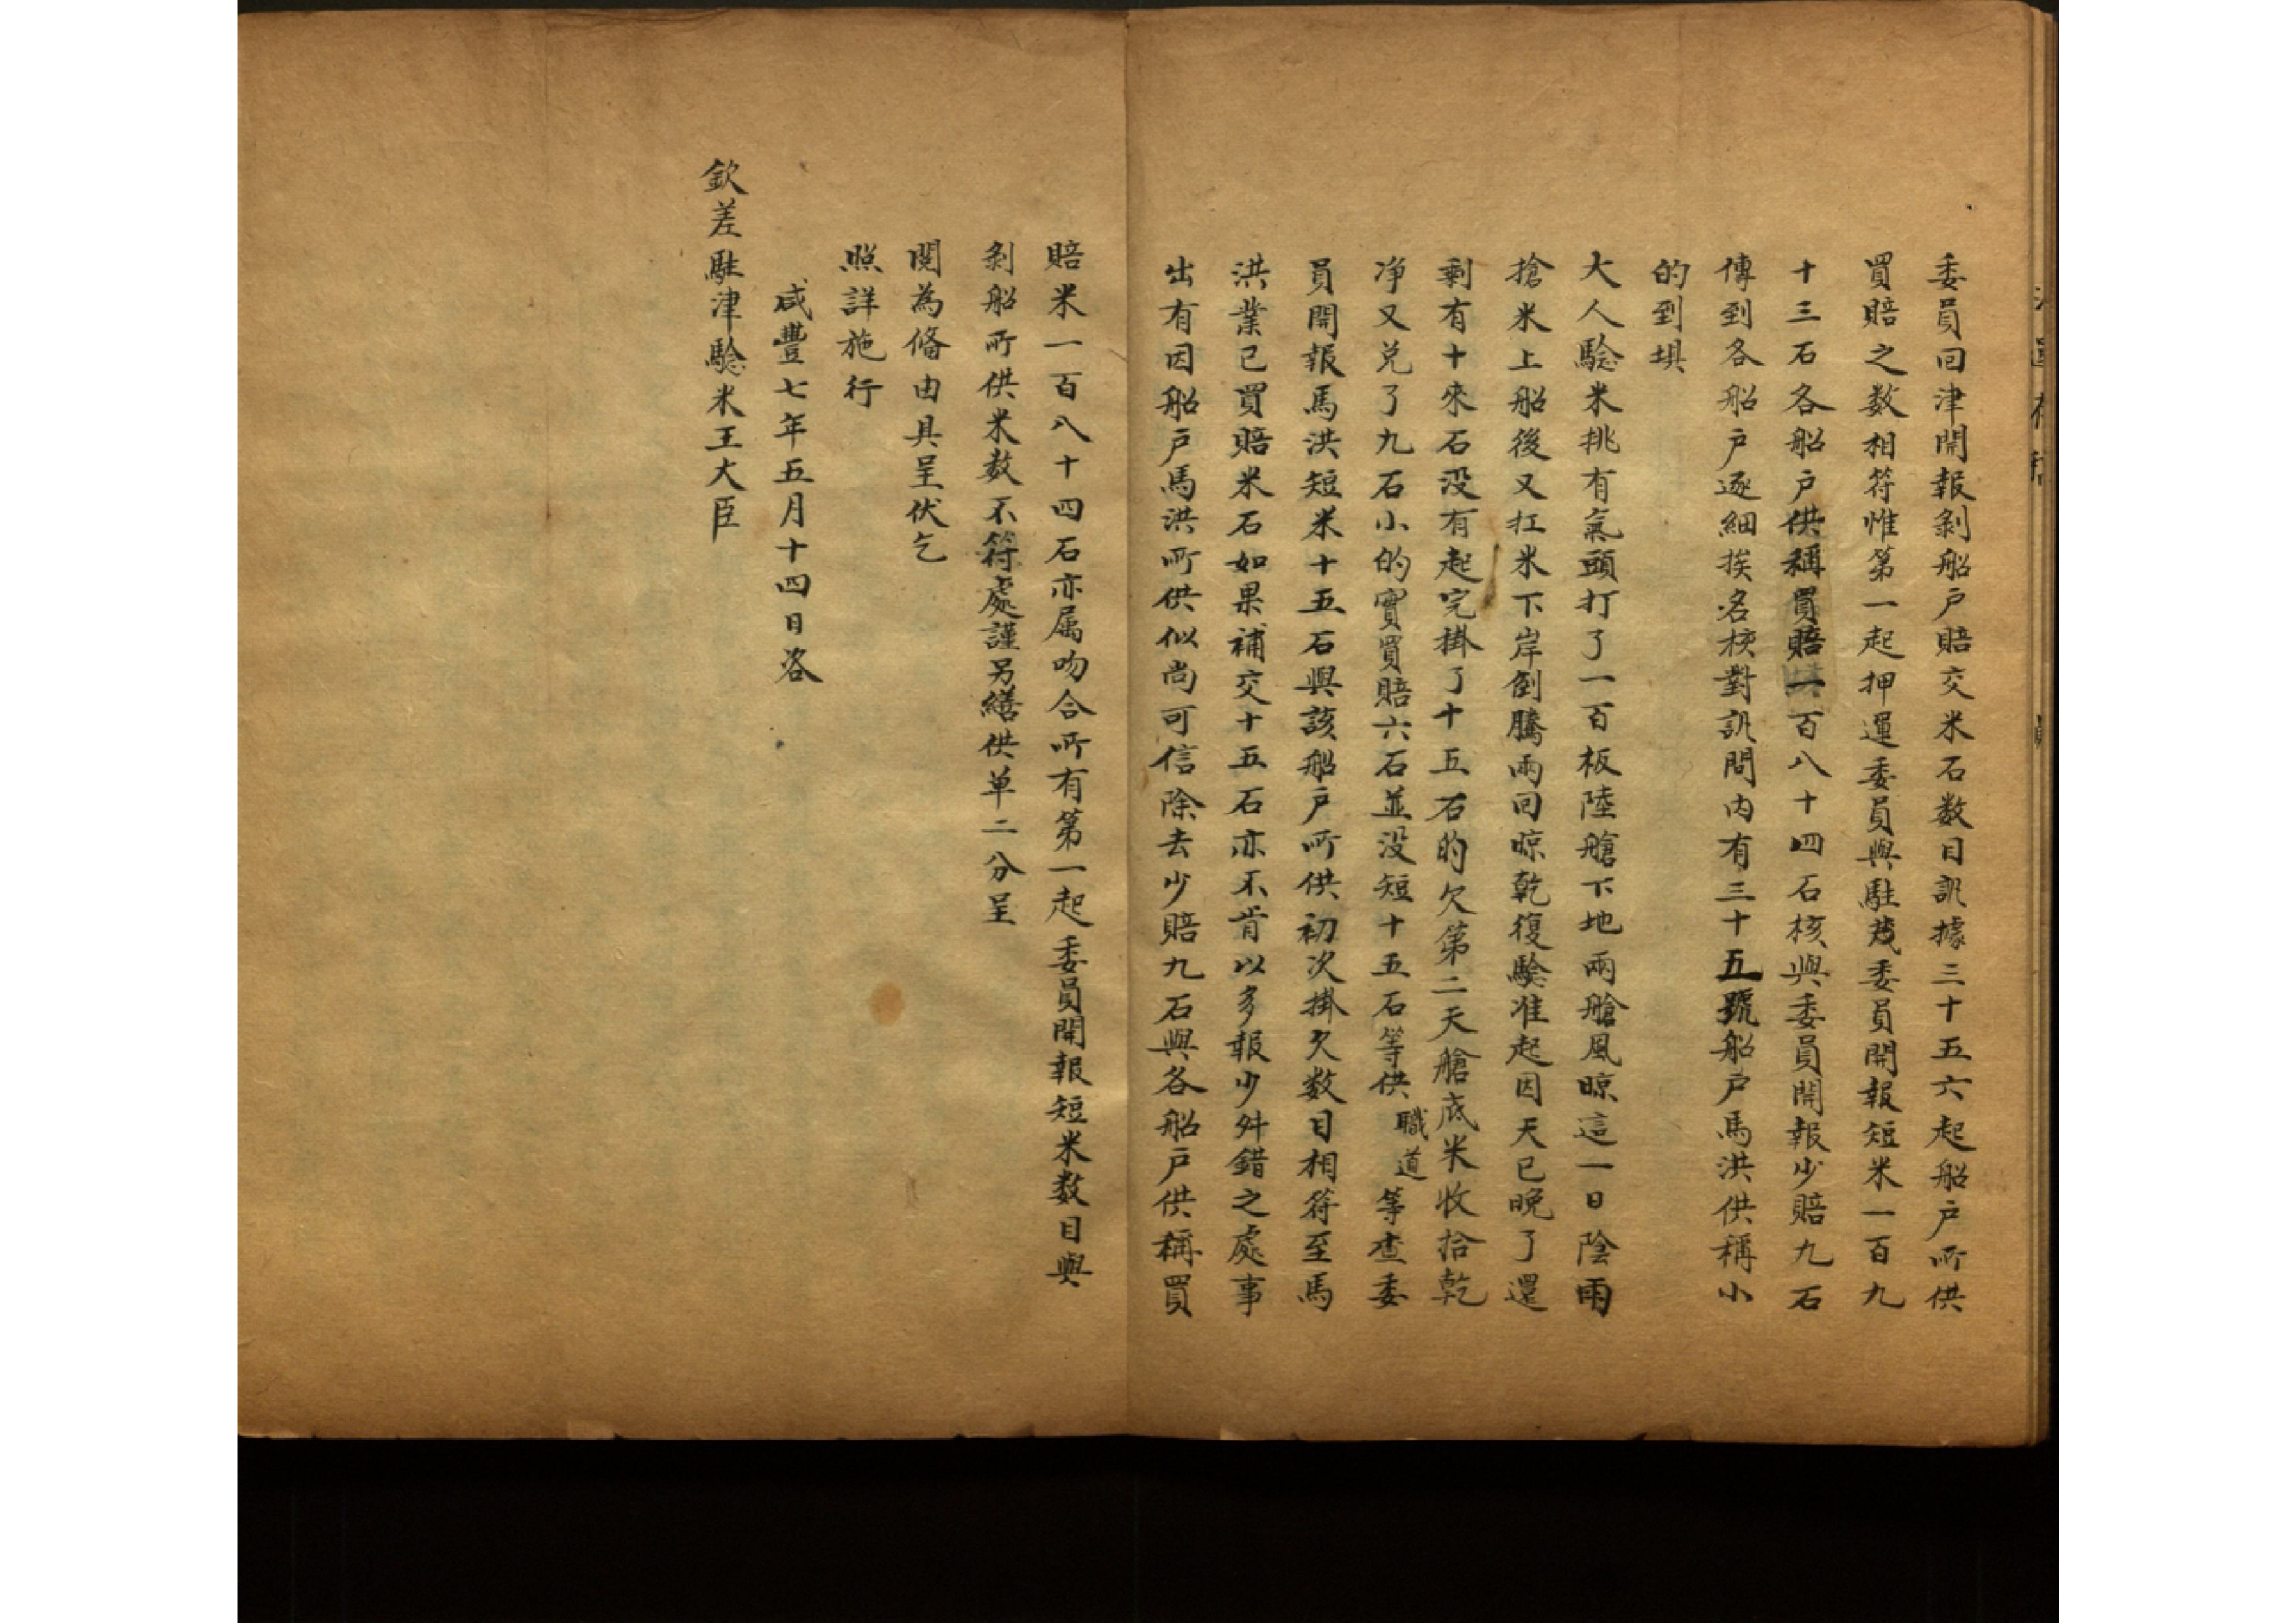 委員回津開報剝船戶賠交米石数目訊據三十五六起船戶所供
買賠之数相符惟第一起押運委員與駐茂委員開報短米一百九
十三石各船戶供稱買賠一百八十四石核與委員開報少賠九石
傳到各船戶逐細挨名核對訊問内有三十五號船戶馬洪供稱小
的到垻
大人驗米挑有氣頭打了一百板陸艙下地兩艙風晾這一日陰雨
搶米上船後又扛米下岸倒騰兩回晾乾復驗准起因天已晚了還
剩有十來石没有起完掛了十五石的欠第二天艙底米收拾乾
净又兑了九石小的實買賠六石並没短十五石等供職道等查委
員開報馬洪短米十五石與該船戶所供初次掛欠数目相符至馬
洪業已買賠米石如果補交十五石亦不肯以多報少舛錯之處事
出有因船戶馬洪所供似尚可信除去少賠九石與各船戶供稱買
賠米一百八十四石亦属吻合所有第一起委員開報短米数目與
剝船所供米数不符處謹另繕供单二分呈
閱為俻由具呈伏乞
照詳施行
咸豐七年五月十四日咨
欽差駐津驗米王大臣